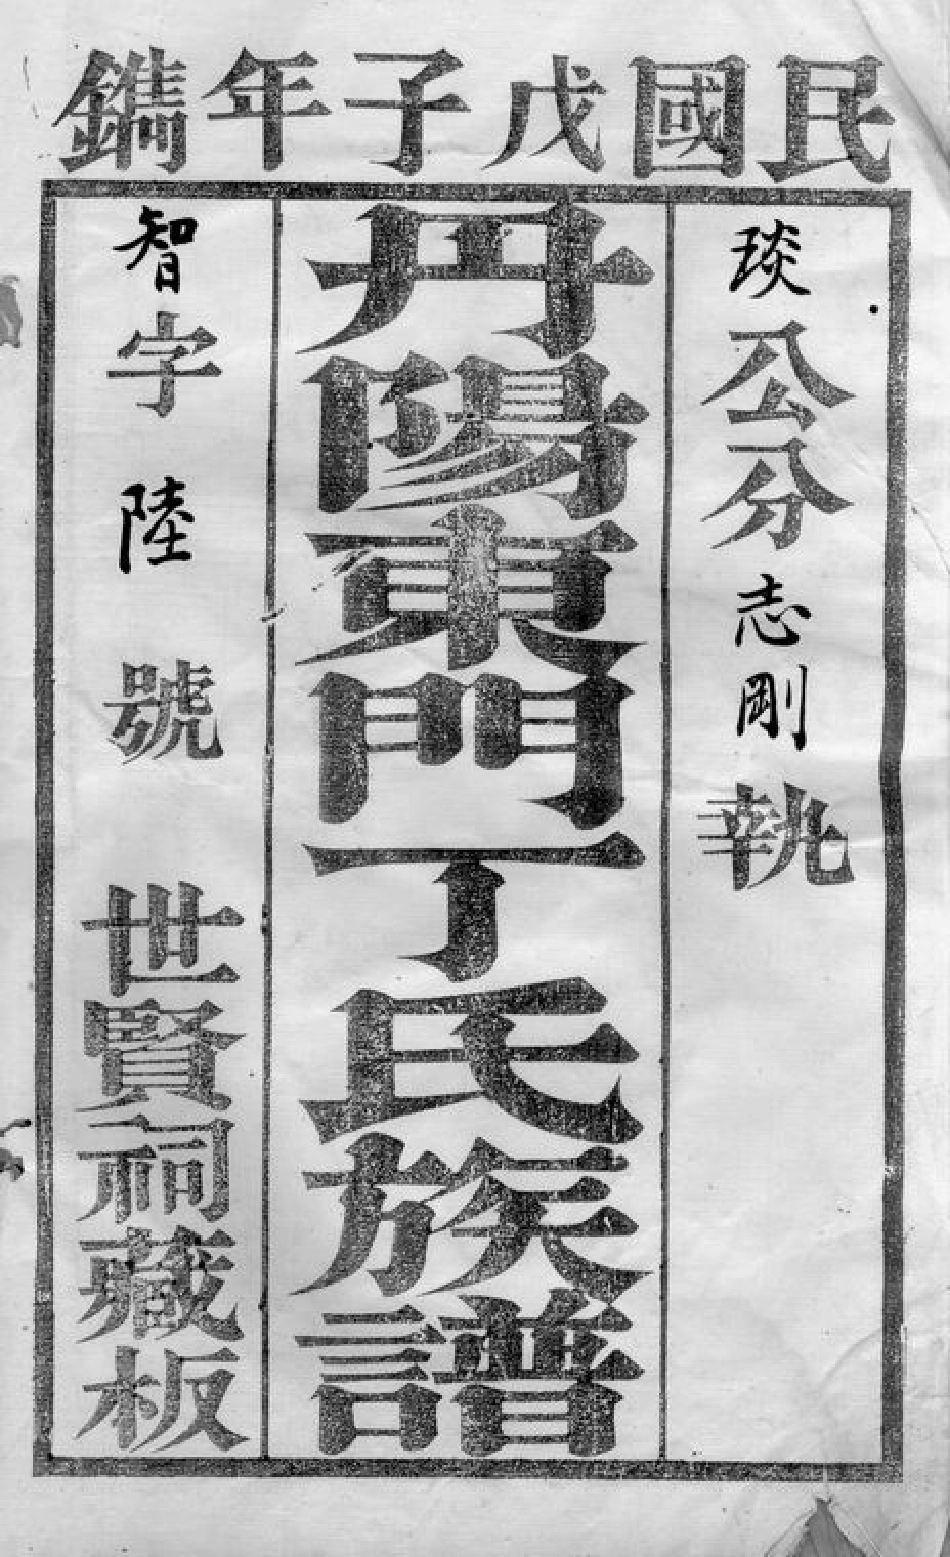 民國戊子年鐫
琰公分志剛執
丹陽東門丁氏族譜
智字陸號 世賢祠藏板